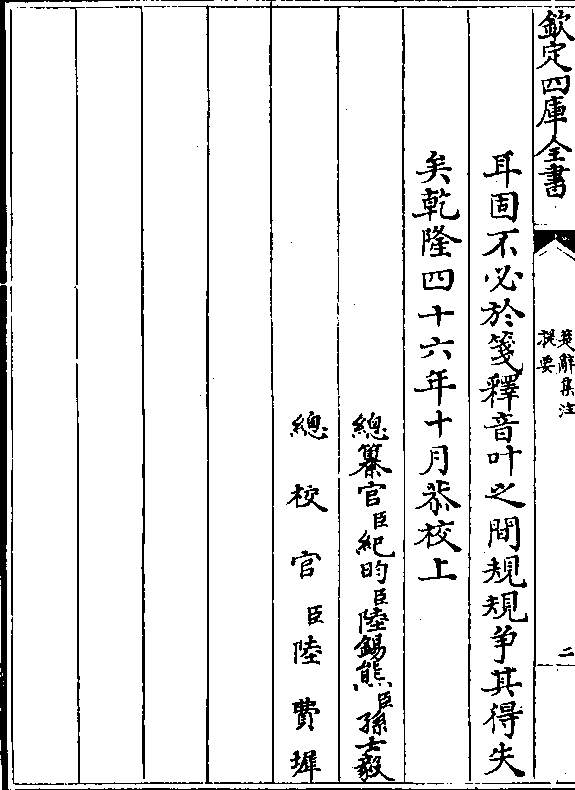 欽定四庫全書
楚辭集注
提要
二
耳固不必於箋釋音叶之間規規爭其得失
矣乾隆四十六年十月恭校上
總纂官臣紀昀臣陸錫熊臣孫士毅
總校官臣陸費墀